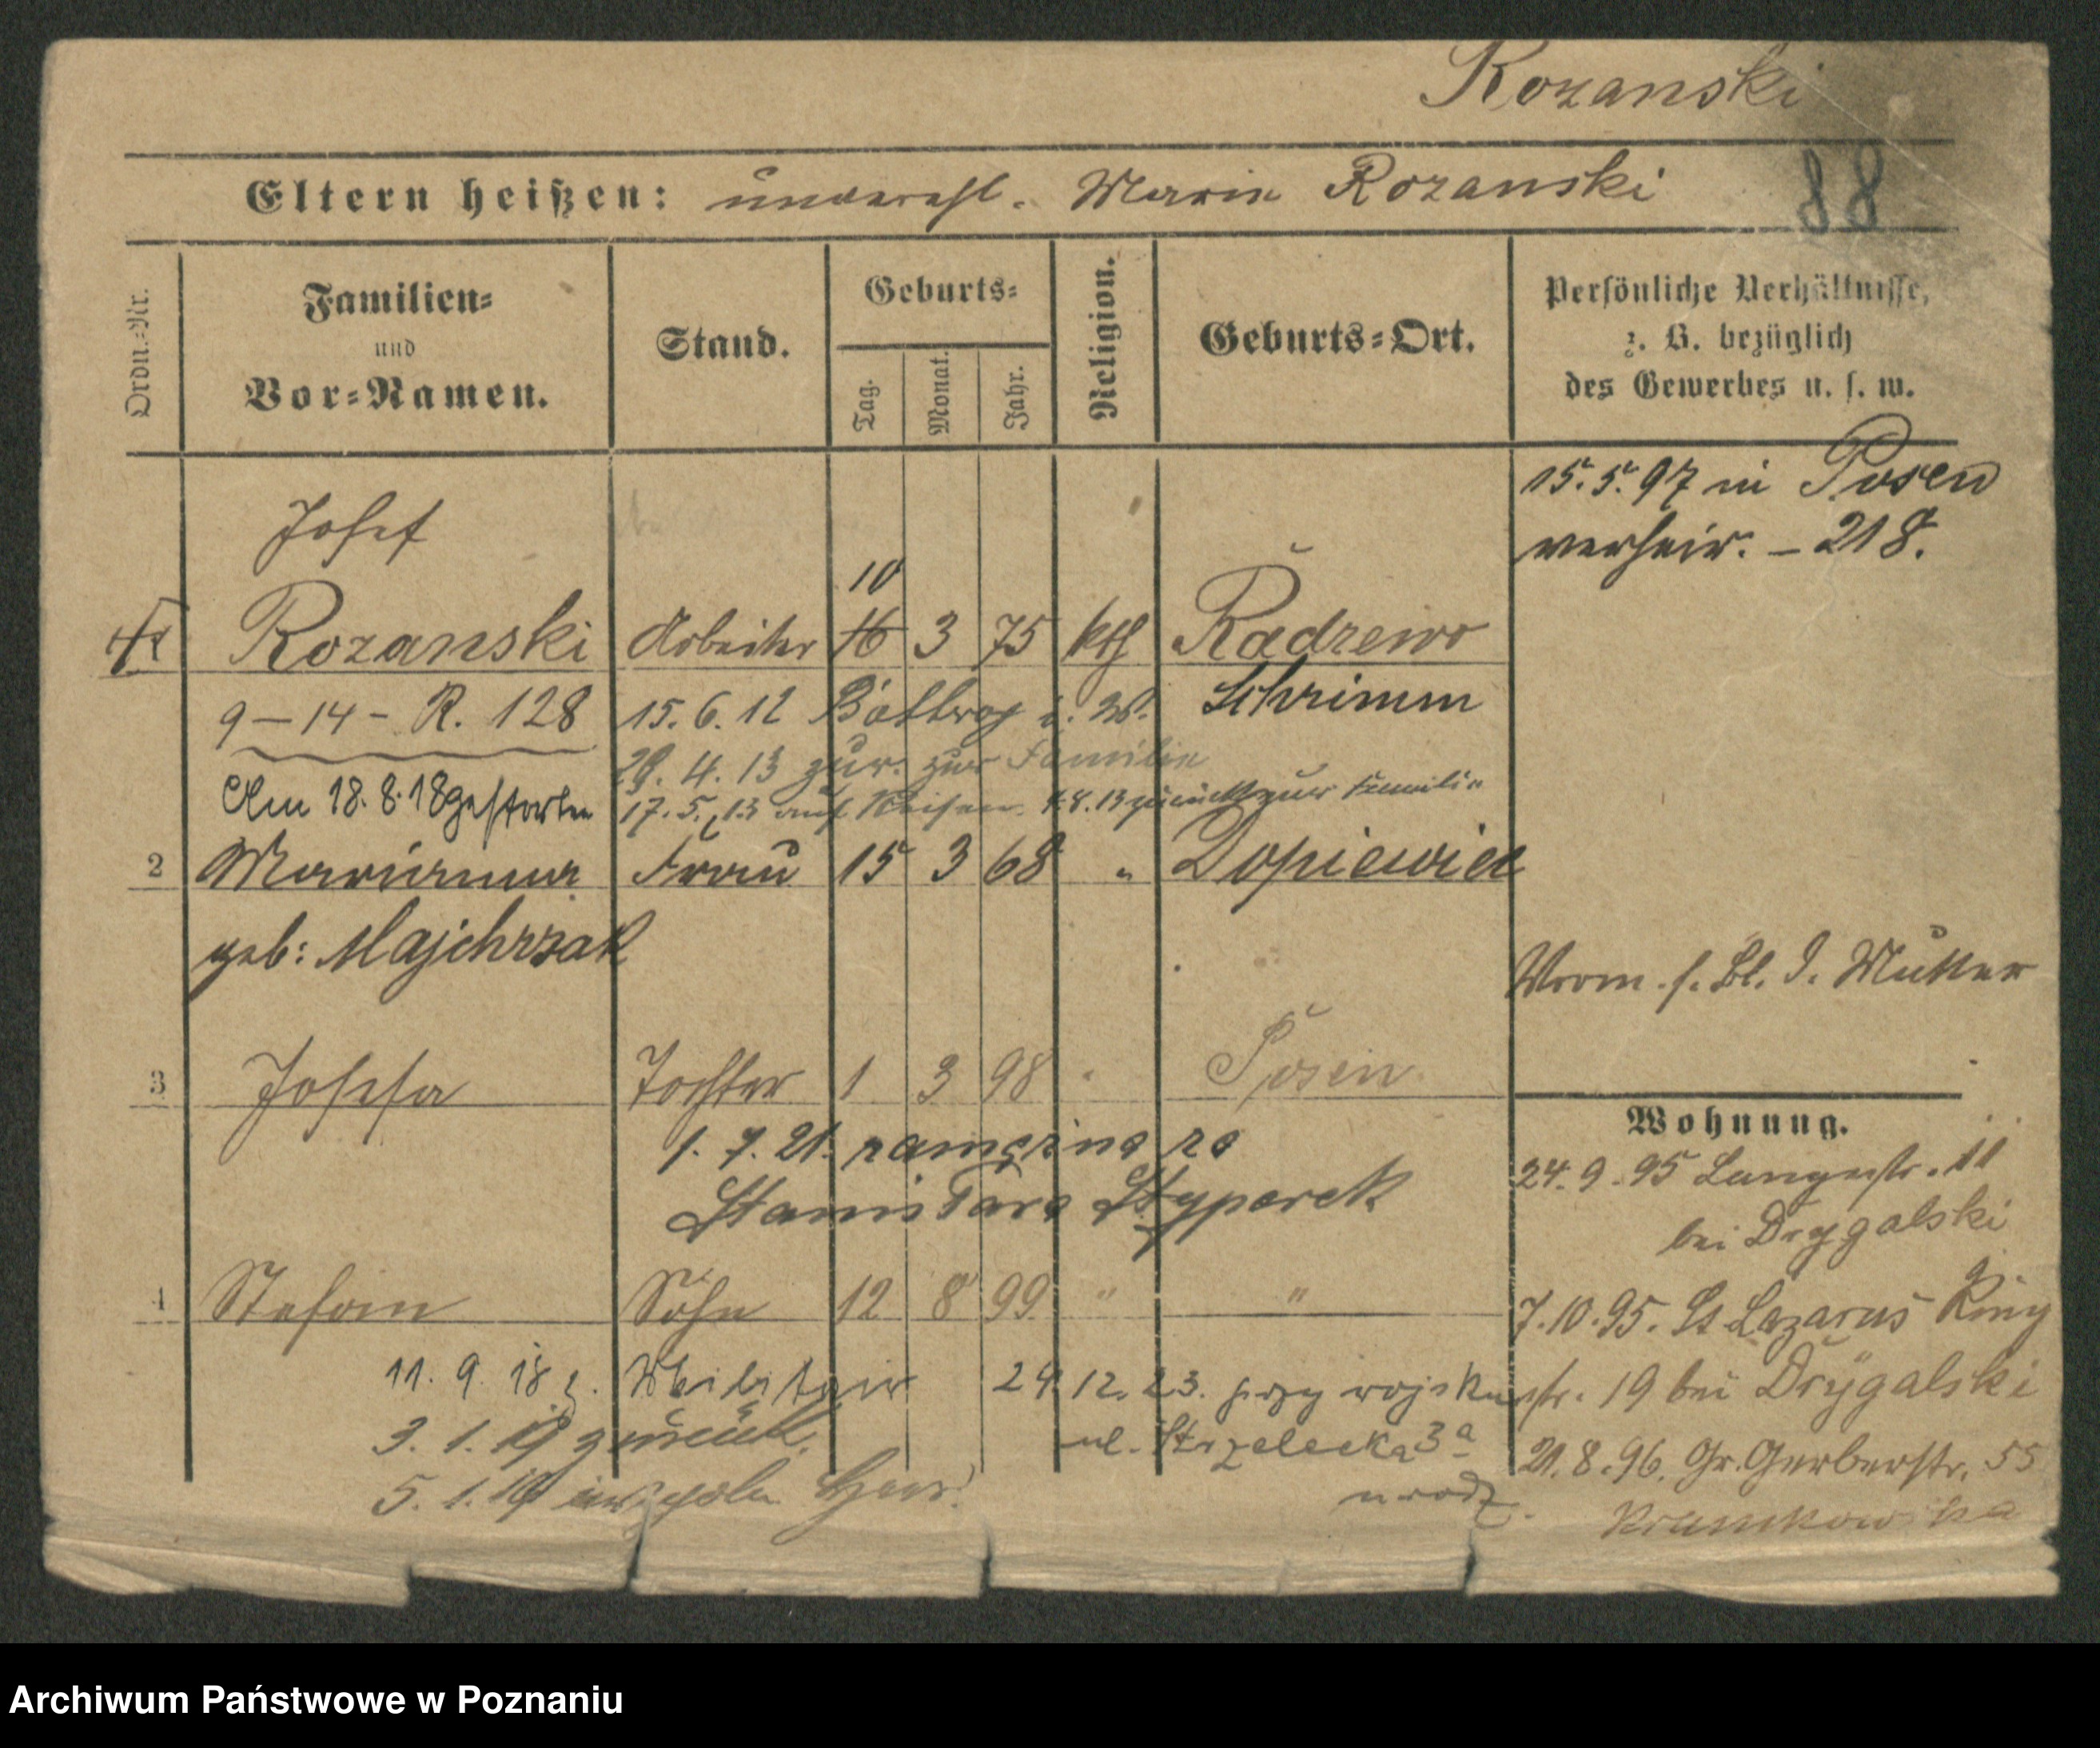 Rozanski
88
Eltern heißen: unverehl. Marie Rozanski
Ordn.=Nr.
Familien=
und
Vor=Namen.
Stand.
Geburts=
Tag.
Monat.
Jahr.
Religion.
Geburts=Ort.
Persönliche Verhältnisse,
z. B. bezüglich
des Gewerbes u. s. w.
15.5.97 in Posen
verheir. – 218.
Josef
10
Rozanski Arbeiter 16 3 75 kth Radzewo
9 – 14 – R. 128 15. 6. 12 Bottrop i. W. Schrimm
29. 4. 13 zur. zur Familie
Am 18. 8. 18 gestorben 17. 5. 13 auf Reisen. 1.8.13 zurück zur Familie
2 Marianna Frau 15 3 68 " Dopiewiec
geb: Majchrzak
Vorm. s. Bl. d. Mutter
3 Josefa Tochter 1 3 98 " Posen
1. 7. 21. zamężna za
Stanisława Styperek
Wohnung.
24. 9. 95 Langestr. 11
bei Drygalski
4 Stefan Sohn 12 8 99 " "
7. 10. 95. St Lazarus Ring
str. 19 bei Drygalski
11. 9. 18 z. Militair 24. 12. 23. przy wojsku
3. 1. 19 zurück. ul. Strzelecka 3a
21. 8. 96. Gr. Gerberstr. 55
5. 1. 19 poln. Heer
urodz.